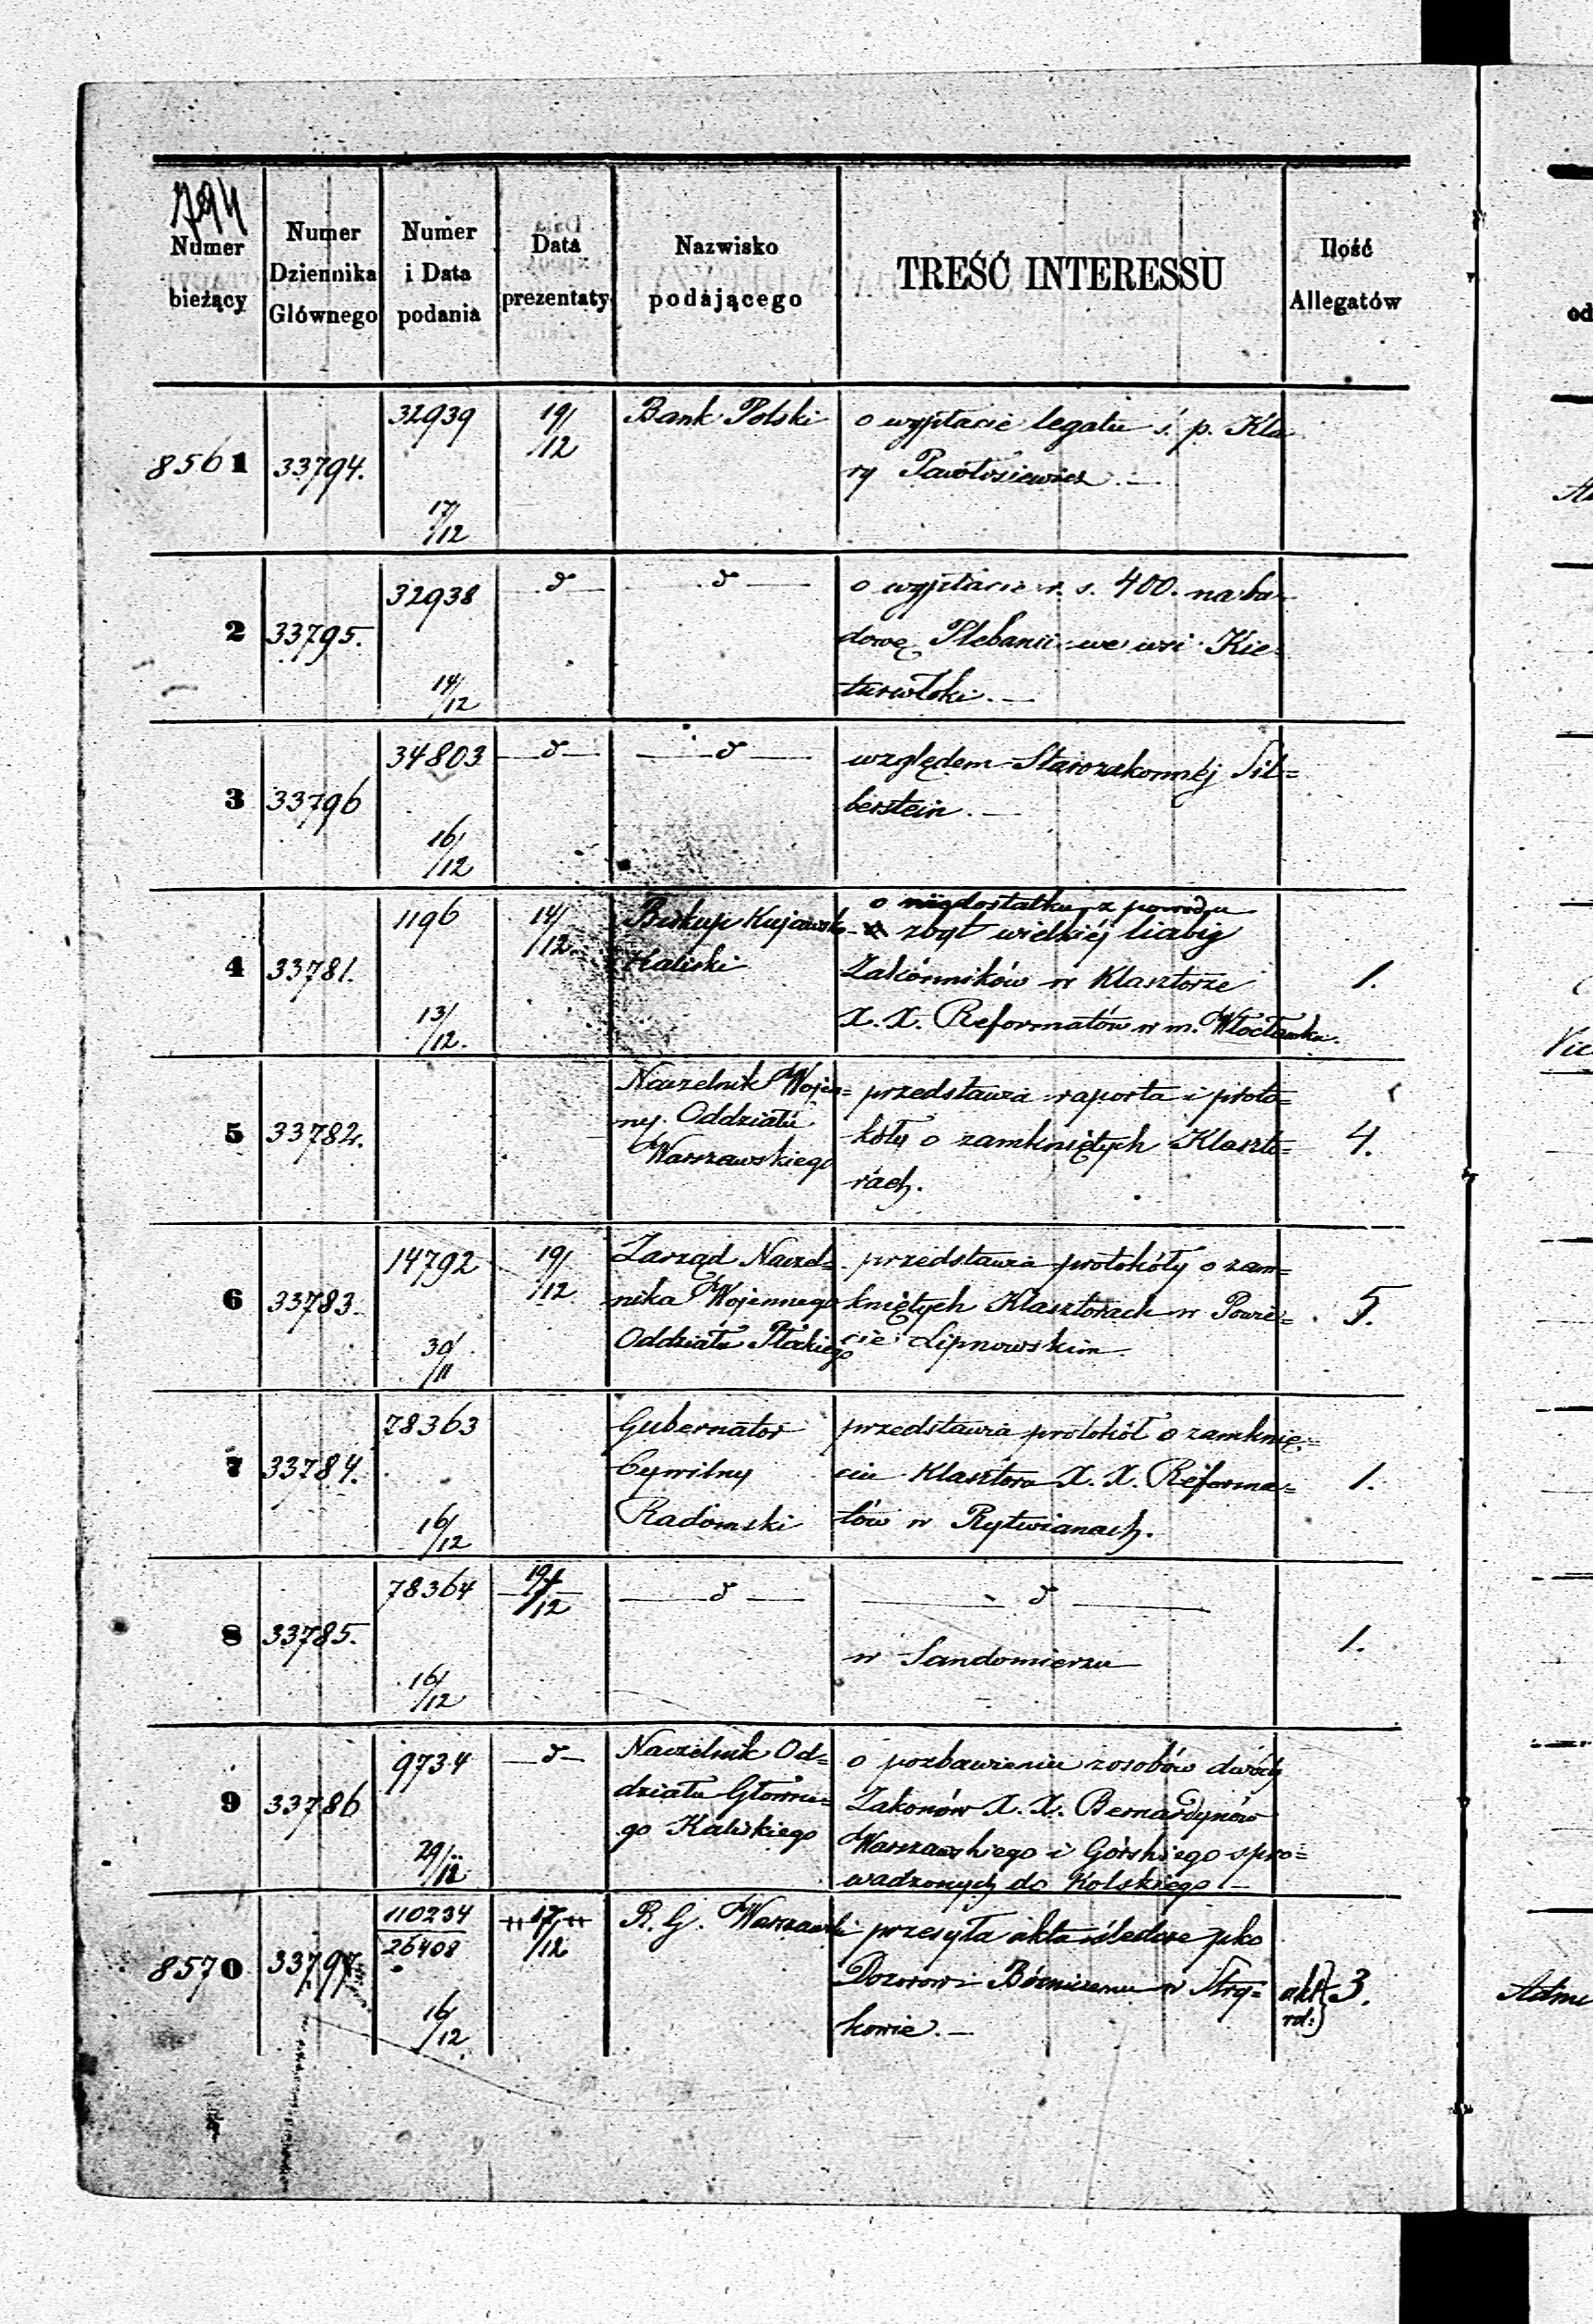 794
Numer
bieżący
Numer
Dziennika
Głównego
Numer
i Data
podania
Data
prezentaty
Nazwisko
podającego
TREŚĆ INTERESSU
Ilość
Allegatów
8561
33794.
32939
17/12
19/12
Bank Polski
o wypłacie legatu ś. p. Kla
ry
2
33795.
32938
14/12
d
d
o wypłacie r. s. 400. na bu
dowę Plebanii we wsi Kie
turwłoki. —
3
33796
34803
16/12
d
d
względem Starozakonnéj Sil=
berstein. —
4
33781.
1196
13/12.
14/12.
Biskup Kujawsko
Kaliski
o niedostatku z powodu
zbyt wielkiéj liczby
Zakonników w Klasztorze
X. X. Reformatów w m. Włocławku.
1.
5
33782.
Naczelnik Wojen=
ny Oddziału
Warszawskiego
przedstawia raporta i proto=
kóły o zamkniętych Klaszto=
rach.
4.
6
33783.
14792
30/11
19/12
Zarząd Naczel=
nika Wojennego
Oddziału Płockiego
przedstawia protokóły o zam=
kniętych Klasztorach w Powie=
cie Lipnowskim
5.
7
33784.
78363
16/12
Gubernator
Cywilny
Radomski
przedstawia protokół o zamknię=
ciu Klasztoru X. X. Reforma=
tów w Rytwianach.
1.
8
33785.
78364
16/12
19/12
d
d
w Sandomierzu
1.
9
33786
9734
29/12
d
Naczelnik Od=
działu Główne=
go Kaliskiego
o pozbawieniu zosobów dwóch
Zakonów X. X. Bernardynów
Warszawskiego i Górskiego spro=
wadzonych do Kolskiego —
8570
33797
110234
26408
16/12
17/12
R. G. Warszawski
przesyła akta śledcze pko
Dozorowi Bóżniczemu w Stry=
kowie. —
akt
rd:
3.